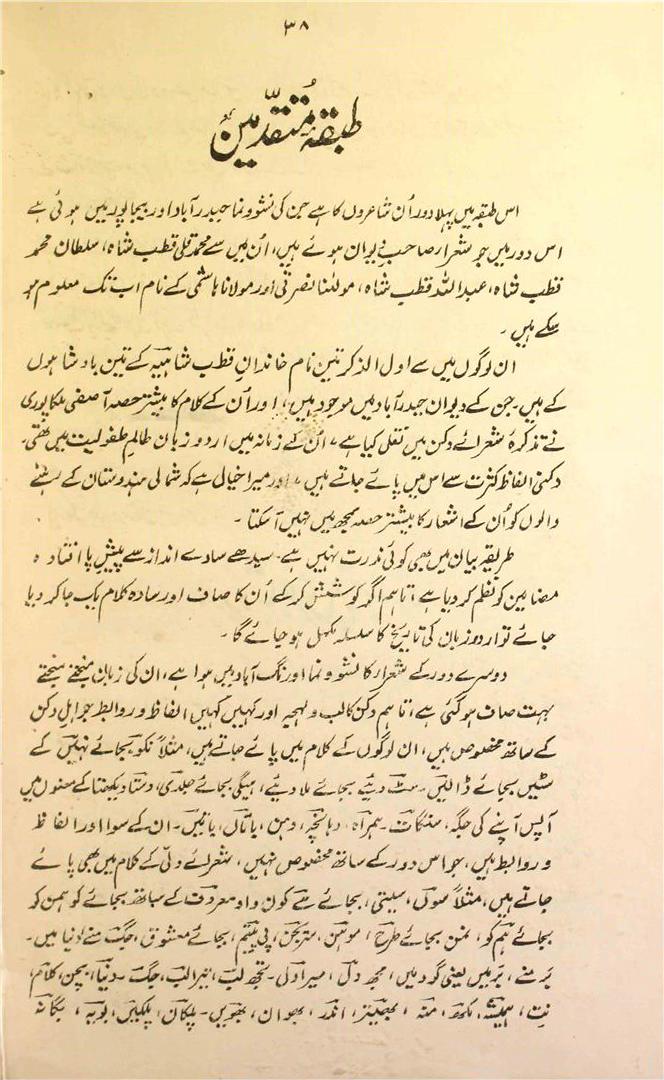 ۳۸
طبقۂ متقدمین
اس طبقہ میں پہلا دور اُن شاعروں کا ہے جن کی نشو و نما حیدرآباد اور بیجاپور میں ہوئی ہے
اس دور میں جو شعراء صاحبِ دیوان ہوئے ہیں، اُن میں سے محمد قلی قطب شاہ، سلطان محمد
قطب شاہ، عبداللہ قطب شاہ، مولٰنا نصرتی اور مولانا ہاشمی کے نام اب تک معلوم ہو
سکے ہیں۔
ان لوگوں میں سے اول الذکر تین نام خاندانِ قطب شاہیہ کے تین بادشاہوں
کے ہیں۔ جن کے دیوان حیدرآباد میں موجود ہیں، اور اُن کے کلام کا بیشتر حصہ آصفی ملکاپوری
نے تذکرۂ شعرائے دکن میں نقل کیا ہے، اُن کے زمانہ میں اردو زبان عالمِ طفولیت میں تھی۔
دکنی الفاظ کثرت سے اس میں پائے جاتے ہیں، اور میرا خیال ہے کہ شمالی ہندوستان کے رہنے
والوں کو اُن کے اشعار کا بیشتر حصہ سمجھ میں نہیں آ سکتا۔
طریقۂ بیان میں بھی کوئی ندرت نہیں ہے۔ سیدھے سادے انداز سے پیش پا افتادہ
مضامین کو نظم کر دیا ہے، تاہم اگر کوشش کر کے اُن کا صاف اور سادہ کلام یک جا کر دیا
جائے تو اردو زبان کی تاریخ کا سلسلہ مکمل ہو جائے گا۔
دوسرے دور کے شعراء کا نشو و نما اورنگ آباد میں ہوا ہے، ان کی زبان منجھتے منجھتے
بہت صاف ہو گئی ہے، تاہم دکن کا لب و لہجہ اور کہیں کہیں الفاظ و روابط جو اہلِ دکن
کے ساتھ مخصوص ہیں، ان لوگوں کے کلام میں پائے جاتے ہیں، مثلاً نکو بجائے نہیں کے
سٹیں بجائے ڈالیں۔ سٹ دیئے بجائے ملا دیئے، بیگی بجائے جلدی، دستا دیکھتا کے معنوں میں
آپس آپنے کی جگہ، سنگات ہمراہ، دہن، یاتاں، باتیں۔ ان کے سوا اور الفاظ
و روابط ہیں، جو اس دور کے ساتھ مخصوص نہیں، شعرائے دلّی کے کلام میں بھی پائے
جاتے ہیں، مثلاً سوں، سیتی، بجائے سے کوں واو معروف کے ساتھ بجائے کو ہمن کو
بجائے ہم کو، نمن بجائے طرح، موہن، سریجن، پی پیتم، بجائے معشوق، جگ منے دنیا میں۔
بر منے، بر میں یعنی گود میں، مجھ دل، میرا دل۔ تجھ لب، تیرا لب، جگ۔ دنیا، بچن، کلام،
نت، ہمیشہ، مکھ، منہ، بھیتر، اندر، بھواں، بھویں۔ پلکاں، پلکیں،